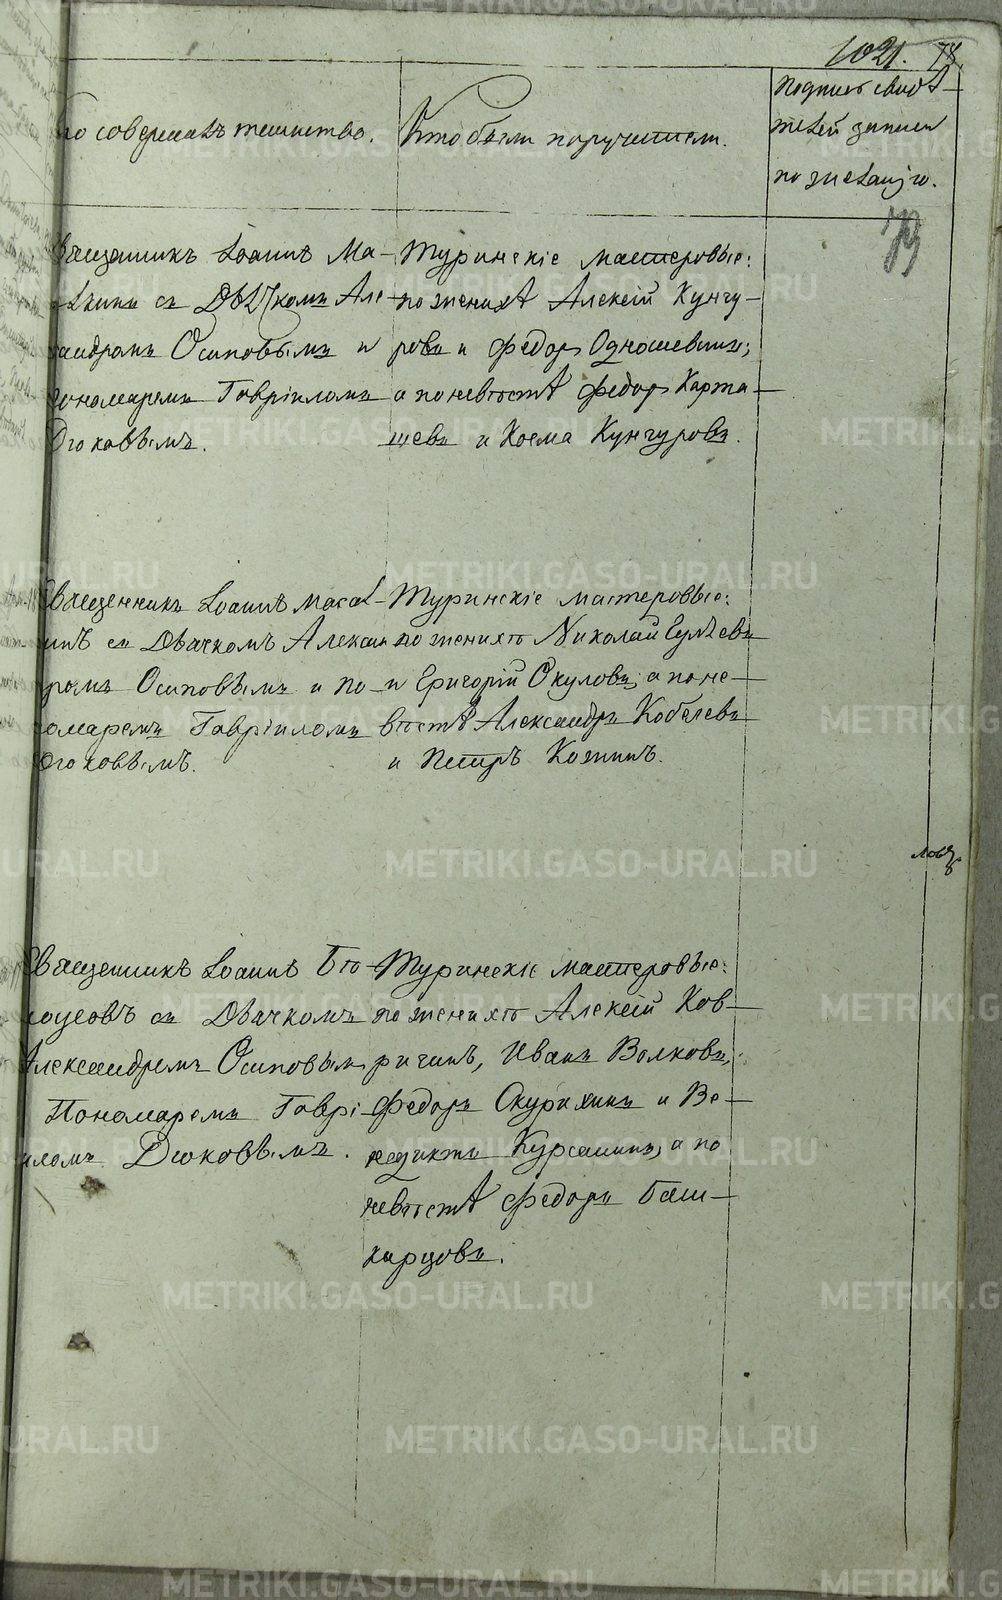 1021. 78.
79
Кто совершалъ таинство.
Кто были поручители.
Подпись свидѣ-
телей записи
по желанію.
Священникъ Іоаннъ Ма-
съ Дьячкомъ Але-
ксандромъ Осиповымъ и
пономаремъ Гавріиломъ
Дюковымъ.
Туринскіе мастеровые:
по женихѣ Алексій Кунгу-
ровъ и Федоръ Одношевинъ;
а по невѣстѣ Федоръ Карта-
шевъ и Косма Кунгуровъ.
Священникъ Іоаннъ
съ Дьячкомъ Алексан
дромъ Осиповымъ и по-
номаремъ Гавріиломъ
Дюковымъ.
Туринскіе мастеровые:
по женихѣ Николай
и Григорій Окуловъ, а по не-
вѣстѣ Александръ Кобелевъ
и Петръ Козинъ.
Священникъ Іоаннъ Бѣло-
усовъ съ Дьячкомъ
Александромъ Осиповым
Пономаремъ Гаврі-
иломъ Дюковымъ.
Туринскіе мастеровые:
по женихѣ Алексій Ков-
ригинъ, Иванъ Волковъ,
Федоръ Скурихинъ и Ве-
недиктъ Курсанинъ, а по
невѣстѣ Федоръ Баш-
карцовъ.
ловъ
METRIKI.GASO-URAL.RU